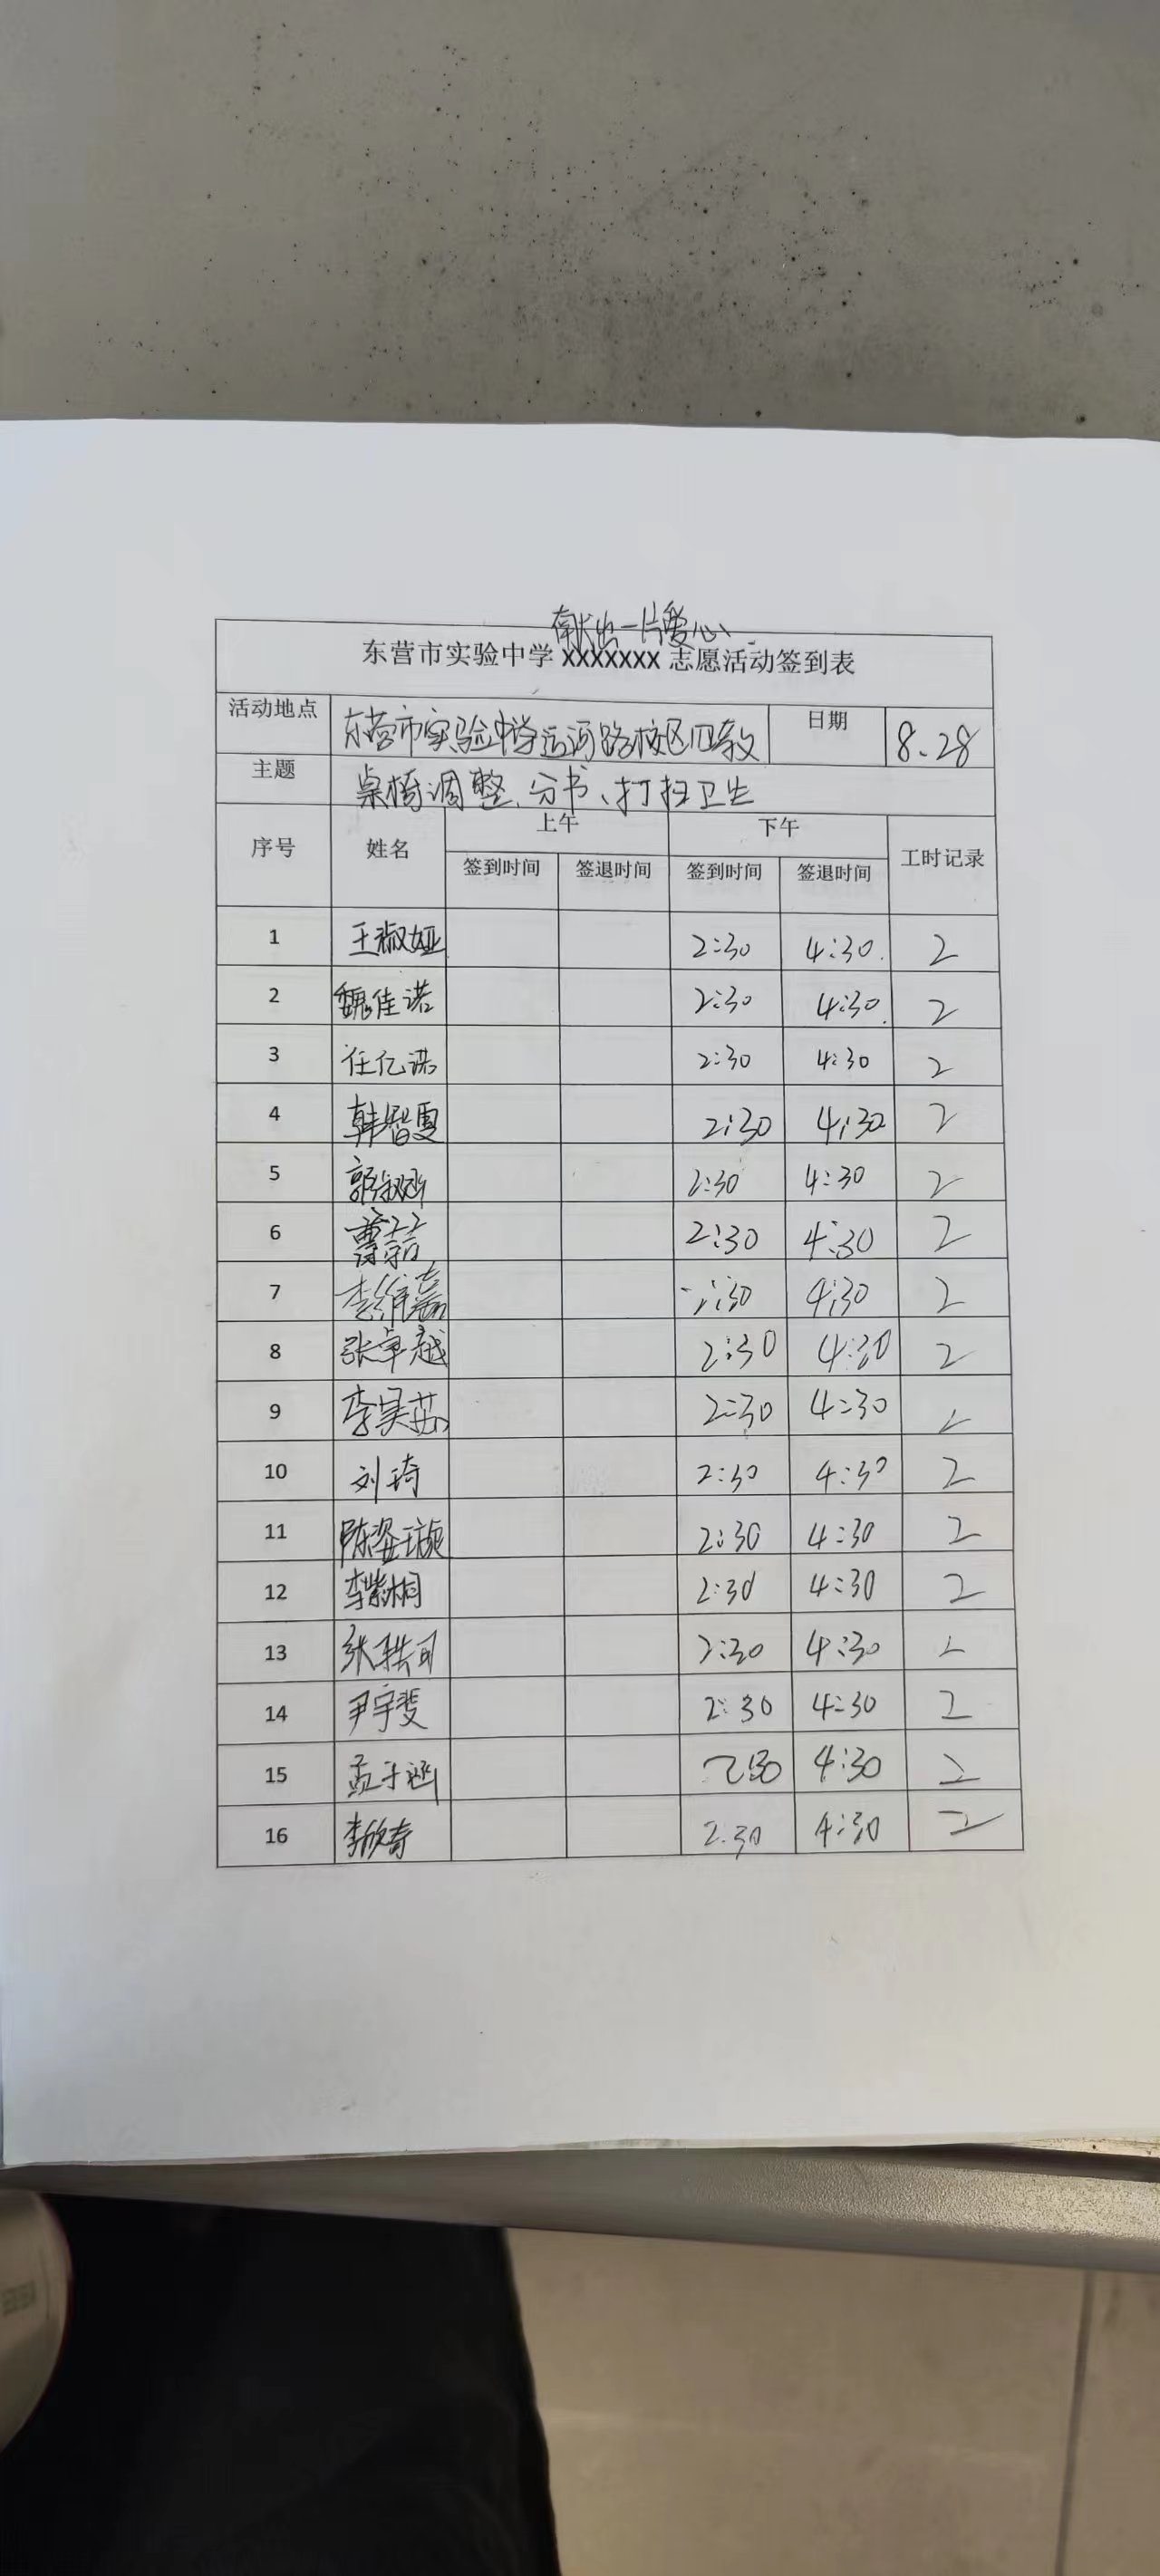 献出一片爱心
东营市实验中学 XXXXXXX 志愿活动签到表
活动地点 东营市实验中学运河路校区四教 日期 8.28
主题 桌椅调整、分书、打扫卫生
序号 姓名 上午 下午 工时记录
签到时间 签退时间 签到时间 签退时间
1 王淑娅 2:30 4:30. 2
2 魏佳诺 2:30 4:30. 2
3 任亿诺 2:30 4:30 2
4 韩智夏 2:30 4:30 2
5 2:30 4:30 2
6 2:30 4:30 2
7 李维嘉 2:30 4:30 2
8 张卓越 2:30 4:30 2
9 李昊苏 2:30 4:30 2
10 刘琦 2:30 4:30 2
11 陈姿璇 2:30 4:30 2
12 李紫桐 2:30 4:30 2
13 张轶可 2:30 4:30 2
14 尹宇斐 2:30 4:30 2
15 孟子涵 2:30 4:30 2
16 李欣奇 2:30 4:30 2